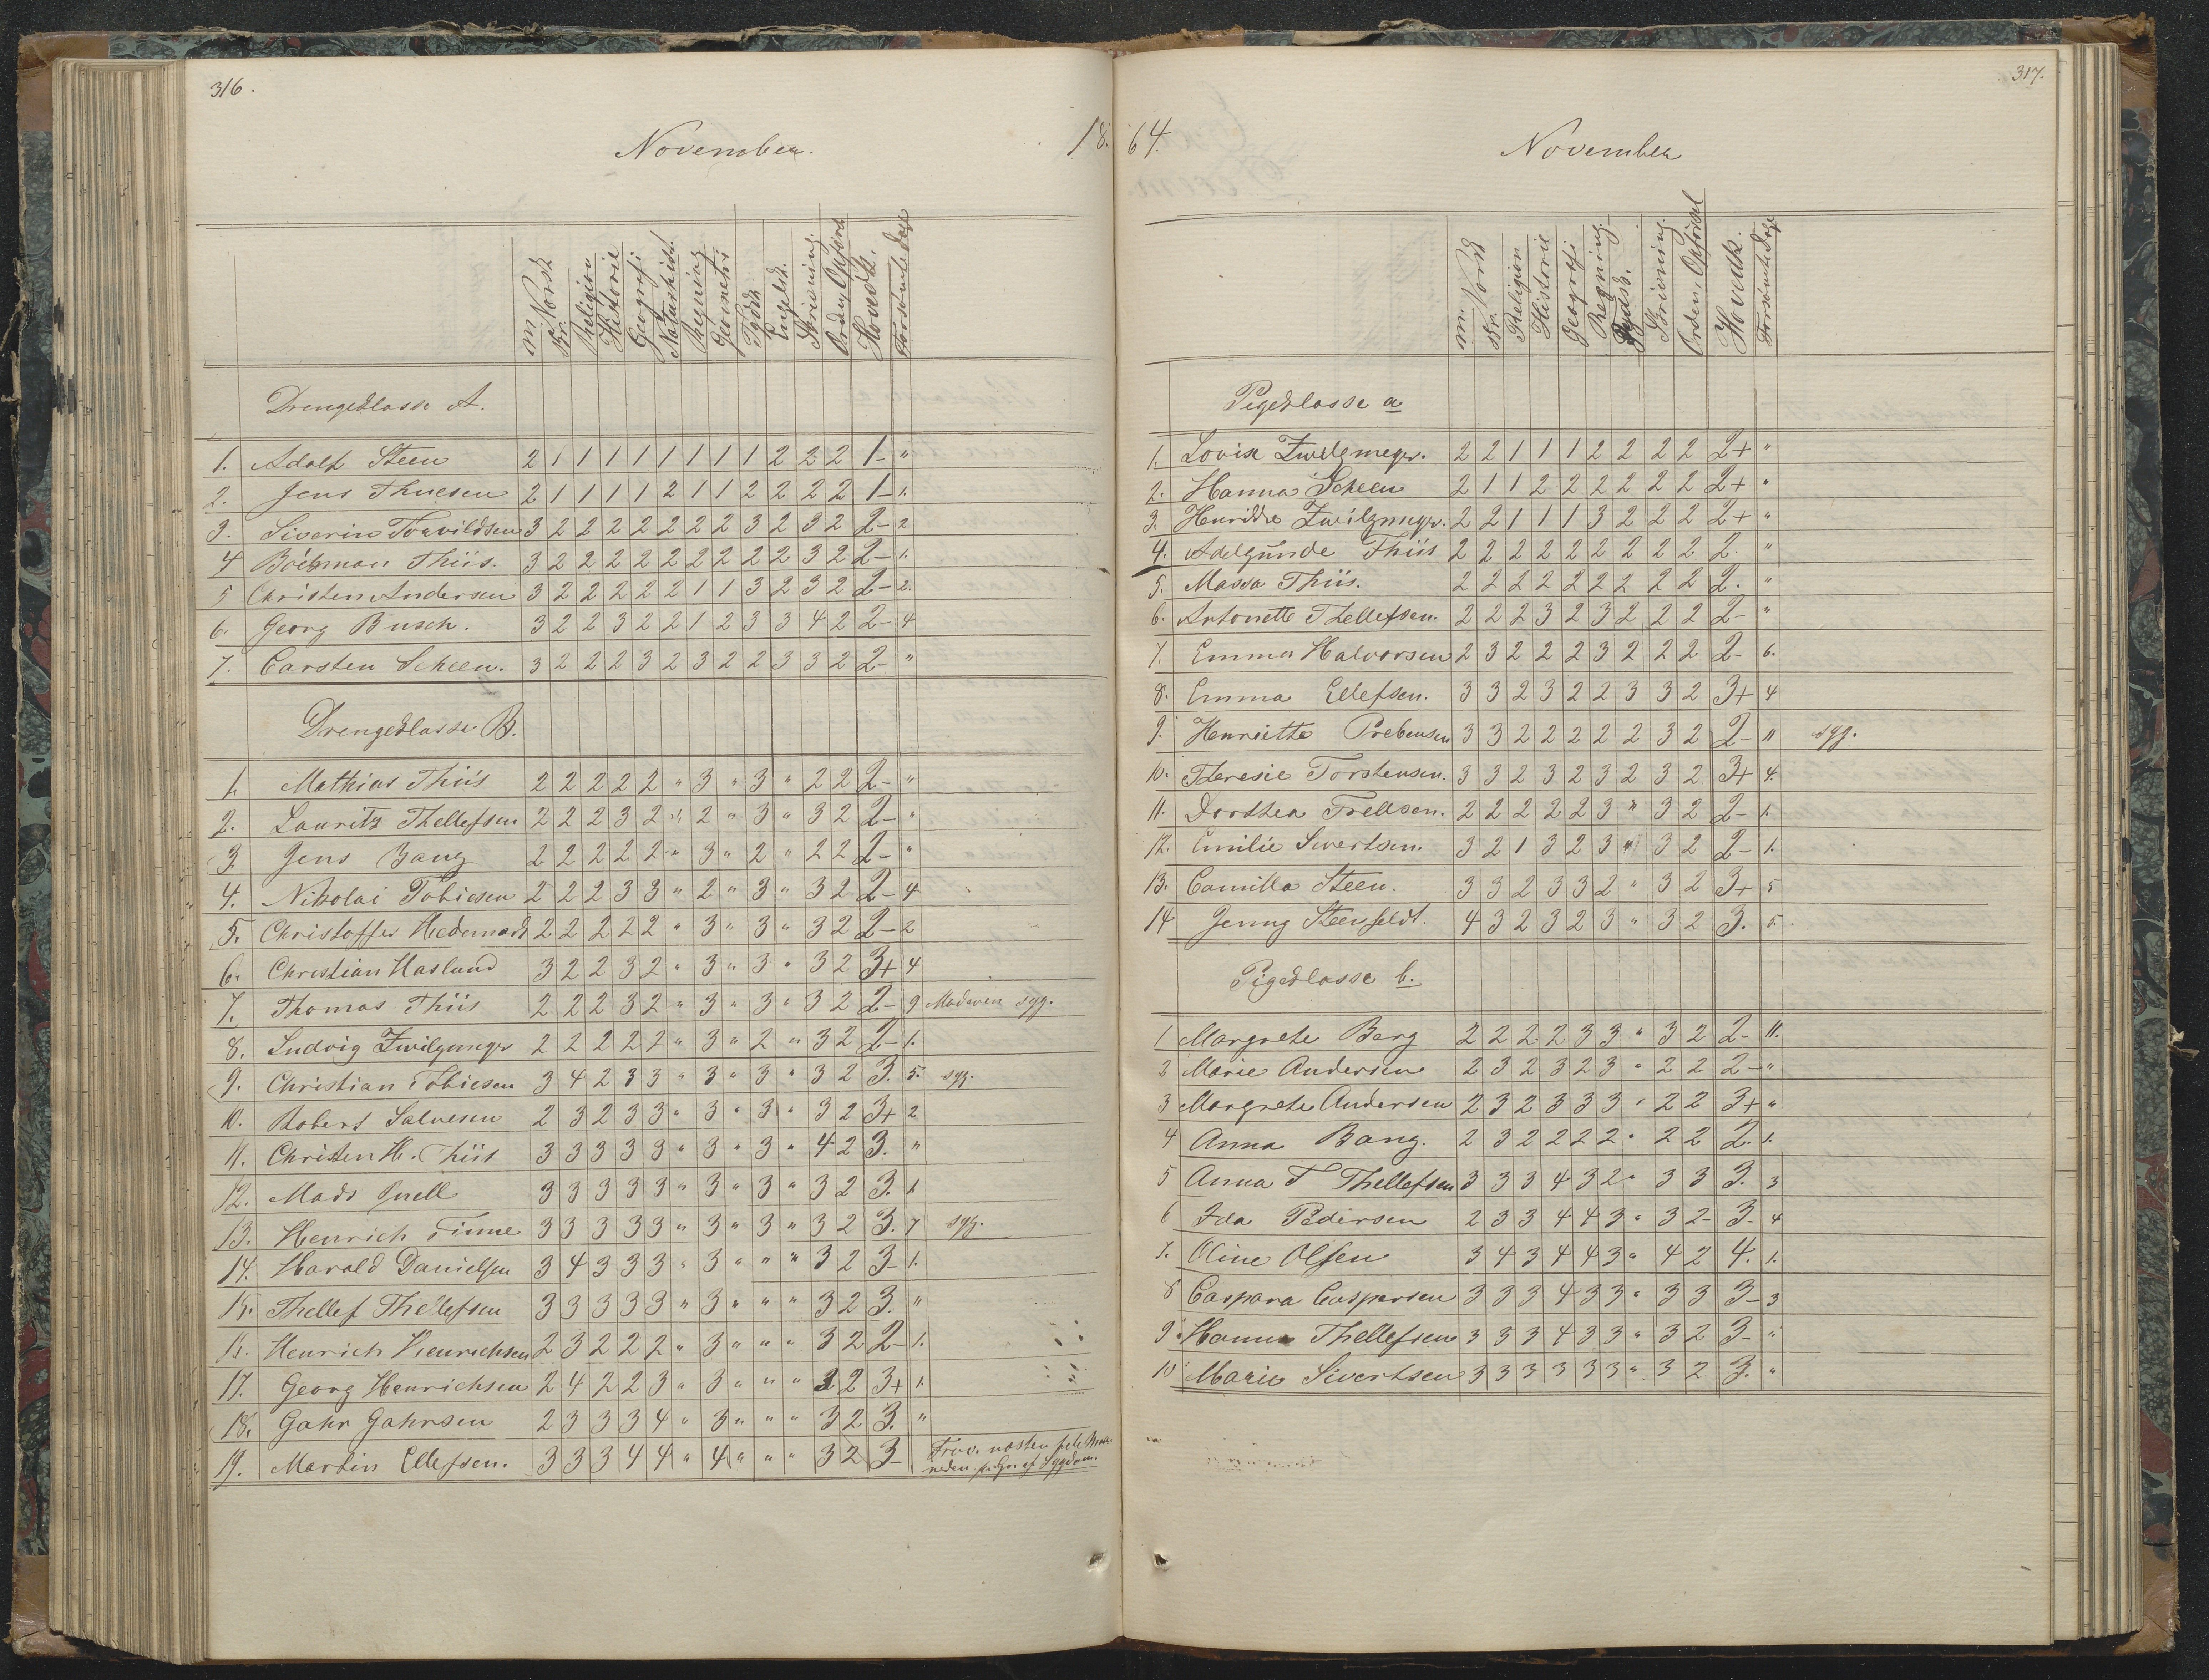 316.
November.
18
m. Norsk
skr.
Religion
Historie
Geografi
Naturhist.
Regning
Geometri
Tydsk
Engelsk.
Skrivning.
Orden, Opførsel
Hovedk.
Forsømte Dage
Drengeklasse A.
1. Adolf Steen 2 1 1 1 1 1 1 1 1 2 2 2 1- "
2. Jens Thuesen 2 1 1 1 1 2 1 1 2 2 2 2 1- 1.
3. Siverin Torvildsen 3 2 2 2 2 2 2 2 3 2 3 2 2- 2
4 Thiis. 3 2 2 2 2 2 2 2 2 2 3 2 2- 1.
5 Christen Andersen 3 2 2 2 2 2 1 1 3 2 3 2 2- 2.
6. Georg Busch. 3 2 2 3 2 2 1 2 3 3 4 2 2- 4
7. Carsten Scheen. 3 2 2 2 3 2 3 2 2 3 3 2 2- "
Drengeklasse B.
1. Mathias Thiis 2 2 2 2 2 " 3 " 3 " 2 2 2- "
2. Lauritz Thellefsen 2 2 2 3 2 " 2 " 3 " 3 2 2- "
3. Jens Bang 2 2 2 2 2 " 3 " 2 " 2 2 2- "
4. Nikolai Tobiesen 2 2 2 3 3 " 2 " 3 " 3 2 2- 4
5. Christoffer Hedemark 2 2 2 2 2 " 3 " 3 " 3 2 2- 2
6. Christian Haslund 3 2 2 3 2 " 3 " 3 " 3 2 3+ 4
7. Thomas Thiis 2 2 2 3 2 " 3 " 3 " 3 2 2- 9 Moderen syg.
8. Ludvig Zwilgmeyer 2 2 2 2 2 " 3 " 2 " 3 2 2- 1.
9. Christian Tobiesen 3 4 2 3 3 " 3 " 3 " 3 2 3. 5. syg.
10. Robert Salvesen 2 3 2 3 3 " 3 " 3 " 3 2 3+ 2
11. Christen H. Thiis 3 3 3 3 3 " 3 " 3 " 4 2 3. "
12. Mads Qvell 3 3 3 3 3 " 3 " 3 " 3 2 3. 1.
13. Henrich Finne 3 3 3 3 3 " 3 " 3 " 3 2 3. 7 syg.
14. Harald Danielsen 3 4 3 3 3 " 3 " " " 3 2 3- 1.
15. Thellef Thellefsen 3 3 3 3 3 " 3 " " " 3 2 3. "
16. Henrich Henrichsen 2 3 2 2 2 " 3 " " " 3 2 2- 1.
17. Georg Henrichsen 2 4 2 2 3 " 3 " " " 3 2 3+ 1.
18. Gahr Gahrsen 2 3 3 3 4 " 3 " " " 3 2 3. "
19. Martin Ellefsen. 3 3 3 4 4 " 4 " " " 3 2 3- Frav. næsten hele Maa-
neden af Sygdom.
317.
64.
November
m. Norsk
skr.
Religion
Historie
Geografi
Regning.
Tydsk.
Skrivning.
Orden, Opførsel
Hovedk.
Forsømte Dage
Pigeklasse a
1. Lovise Zwilgmeyer. 2 2 1 1 1 2 2 2 2 2+ "
2. Hanna Scheen 2 1 1 2 2 2 2 2 2 2+ "
3. Henrikke Zwilgmeyer. 2 2 1 1 1 3 2 2 2 2+ "
4. Adelgunde Thiis 2 2 2 2 2 2 2 2 2 2. "
5. Massa Thiis. 2 2 2 2 2 2 2 2 2 2. "
6. Antonette Thellefsen. 2 2 2 3 2 3 2 2 2 2- "
7. Emma Halvorsen 2 3 2 2 2 3 2 2 2 2- 6.
8. Emma Ellefsen. 3 3 2 3 2 2 3 3 2 3+ 4
9. Henriette Prebensen 3 3 2 2 2 2 2 3 2 2- 11 syg.
10. Theresie Torstensen. 3 3 2 3 2 3 2 3 2 3+ 4.
11. Dorthea Trellsen. 2 2 2 2 2 3 " 3 2 2- 1.
12. Emilie Sivertsen. 3 2 1 3 2 3 " 3 2 2- 1.
13. Camilla Steen. 3 3 2 3 3 2 " 3 2 3+ 5
14 Jenny Steenfeldt. 4 3 2 3 2 3 " 3 2 3. 5.
Pigeklasse b.
1 Margrete Berg 2 2 2 2 3 3 " 3 2 2- 11.
2 Marie Andersen 2 3 2 3 2 3 " 2 2 2- "
3 Margrete Andersen 2 3 2 3 3 3 " 2 2 3+ "
4 Anna Bang. 2 3 2 2 2 2 " 2 2 2. 1.
5 Anna T Thellefsen 3 3 3 4 3 2 " 3 3 3. 3
6 Ida Pedersen 2 3 3 4 4 3 " 3 2- 3- 4
7. Oline Olsen 3 4 3 4 4 3 " 4 2 4. 1.
8 Caspara Caspersen 3 3 3 4 3 3 " 3 3 3- 3
9 Hanna Thellefsen 3 3 3 4 3 3 " 3 2 3- "
10 Marie Sivertsen 3 3 3 3 3 3 " 3 2 3. "